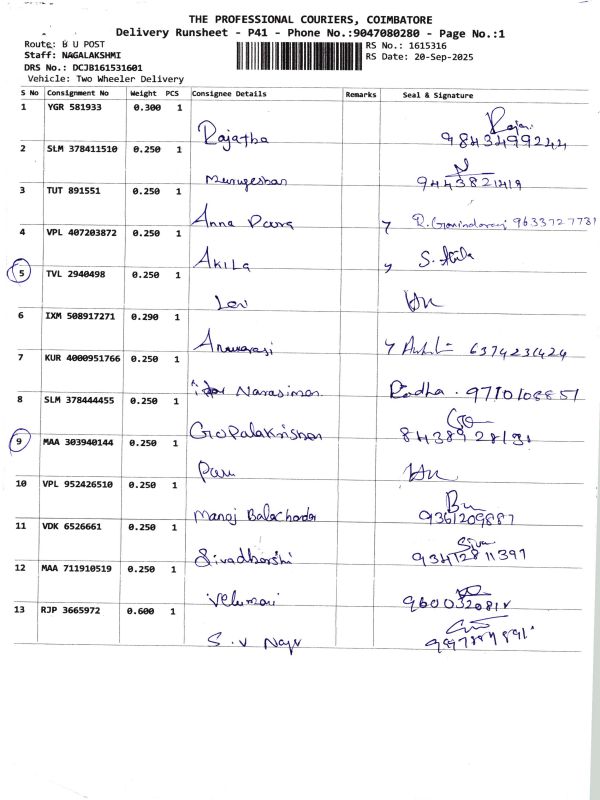 THE PROFESSIONAL COURIERS, COIMBATORE
Delivery Runsheet - P41 - Phone No.:9047080280 - Page No.:1
Route: B U POST
RS No.: 1615316
Staff: NAGALAKSHMI
RS Date: 20-Sep-2025
DRS No.: DCJB161531601
Vehicle: Two Wheeler Delivery
S No Consignment No Weight PCS Consignee Details Remarks Seal & Signature
1 YGR 581933 0.300 1
Rajatha Raja 9843499244
2 SLM 378411510 0.250 1
Murugeshan
3 TUT 891551 0.250 1
Anna R.Govindaraj 9633727731
4 VPL 407203872 0.250 1
AKILA S.
5 TVL 2940498 0.250 1
6 IXM 508917271 0.290 1
Anuarasi 6374231424
7 KUR 4000951766 0.250 1
Narasiman Radha . 9710108851
8 SLM 378444455 0.250 1
Gopalakrishnan 8438928131
9 MAA 303940144 0.250 1
10 VPL 952426510 0.250 1
Manoj Balachandar 9361209887
11 VDK 6526661 0.250 1
Sivadharshi Siva 9341281139
12 MAA 711910519 0.250 1
Velumani
13 RJP 3665972 0.600 1
S.V